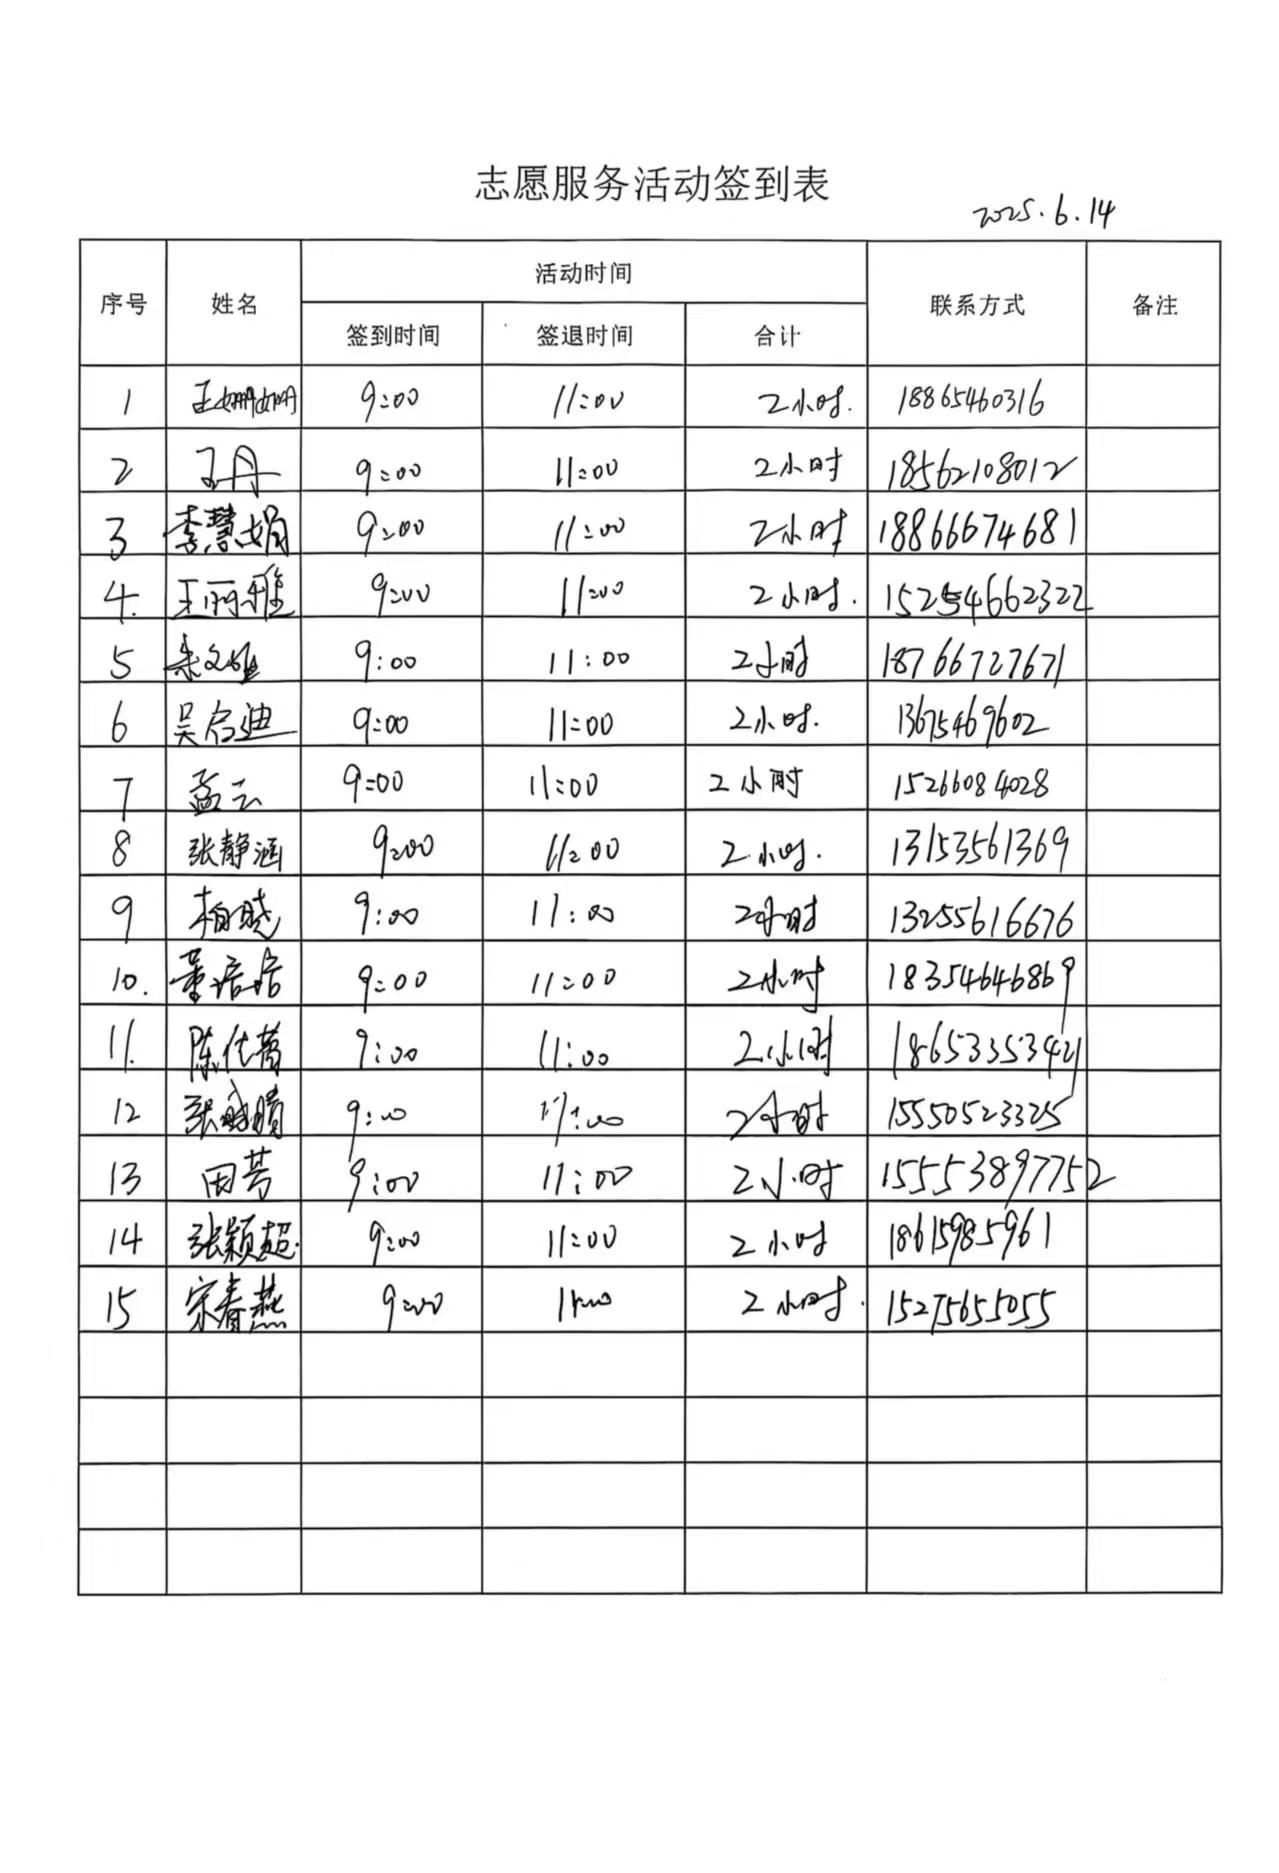 志愿服务活动签到表
2025.6.14
序号 姓名 活动时间 联系方式 备注
签到时间 签退时间 合计
1 王姗姗 9:00 11:00 2小时. 18865460316
2 王丹 9:00 11:00 2小时 18562108012
3 李慧娟 9:00 11:00 2小时 18866674681
4. 王丽雅 9:00 11:00 2小时. 15254662322
5 朱文雅 9:00 11:00 2小时 18766727671
6 吴启迪 9:00 11:00 2小时. 13675469602
7 孟云 9:00 11:00 2小时 15266084028
8 张静涵 9:00 11:00 2小时. 13153561369
9 柏晓 9:00 11:00 2小时 13255616676
10. 董培培 9:00 11:00 2小时 18354646869
11. 陈仕菁 9:00 11:00 2小时 18653353421
12 张晴 9:00 11:00 2小时 15550523325
13 田芳 9:00 11:00 2小时 15553897752
14 张颖超. 9:00 11:00 2小时 18615985961
15 宋春燕 9:00 11:00 2小时. 15275655055